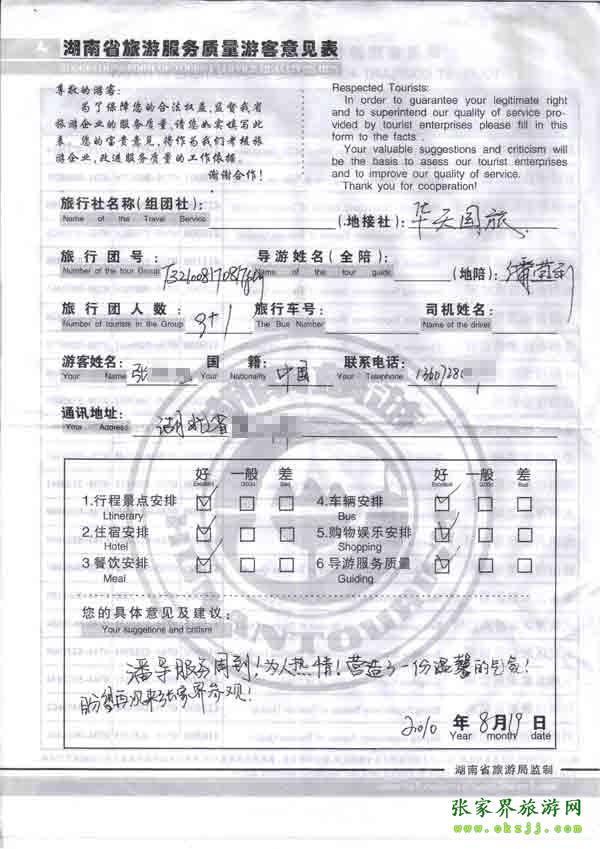 湖南省旅游服务质量游客意见表
尊敬的游客:
为了保障您的合法权益,监督我省
旅游企业的服务质量,请您如实填写此
表。您的宝贵意见,将作为我们考核旅
游企业,改进服务质量的工作依据。
谢谢合作!
Respected Tourists:
In order to guarantee your legitimate right
and to superintend our quality of service pro-
vided by tourist enterprises please fill in this
form to the facts.
Your valuable suggestions and criticism will
be the basis to asess our tourist enterprises
and to improve our quality of service.
Thank you for cooperation!
旅行社名称(组团社): (地接社): 华天国旅
Name of the Travel Service
旅行团号: 导游姓名(全陪): (地陪):
Number of the tour Group Name of the tour guide
旅行团人数: 8+1 旅行车号: 司机姓名:
Number of tourists in the Group The Bus Number Name of the driver
游客姓名: 张 国籍: 中国 联系电话:
Your Name Your Nationality Your Telephone
通讯地址: 湖北省
Your Address
好 一般 差 好 一般 差
Excellent Good Bad Excellent Good Bad
1.行程景点安排 4.车辆安排
Ltinerary Bus
2.住宿安排 5.购物娱乐安排
Hotel Shopping
3.餐饮安排 6 导游服务质量
Meal Guiding
您的具体意见及建议:
Your suggetions and critism
潘导服务周到!为人热情!营造了一份温馨的气氛!
盼望再次来张家界参观!
2010 年 8月19日
Year month date
湖南省旅游局监制
张家界旅游网
www.okzjj.com